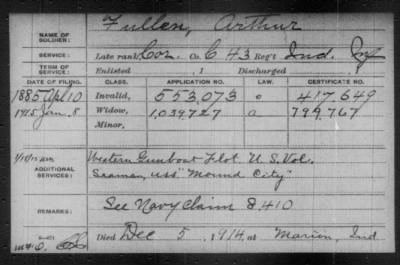 NAME OF SOLDIER: Fullen, Arthur
SERVICE: Late rank Cor. Co. C 43 Reg't Ind. Inf
TERM OF SERVICE: Enlisted , 1 Discharged , 1
DATE OF FILING. CLASS. APPLICATION NO. CERTIFICATE NO.
1885 Apl 10 Invalid, 553,073 c 417,649
1915 Jan. 8 Widow, 1,039,727 a 799,767
Minor,
ADDITIONAL SERVICES: Western Gunboat Flot. U.S. Vol.
Seaman, USS "Mound City"
REMARKS: See Navy Claim 8410
Died Dec 5, 1914, at Marion, Ind